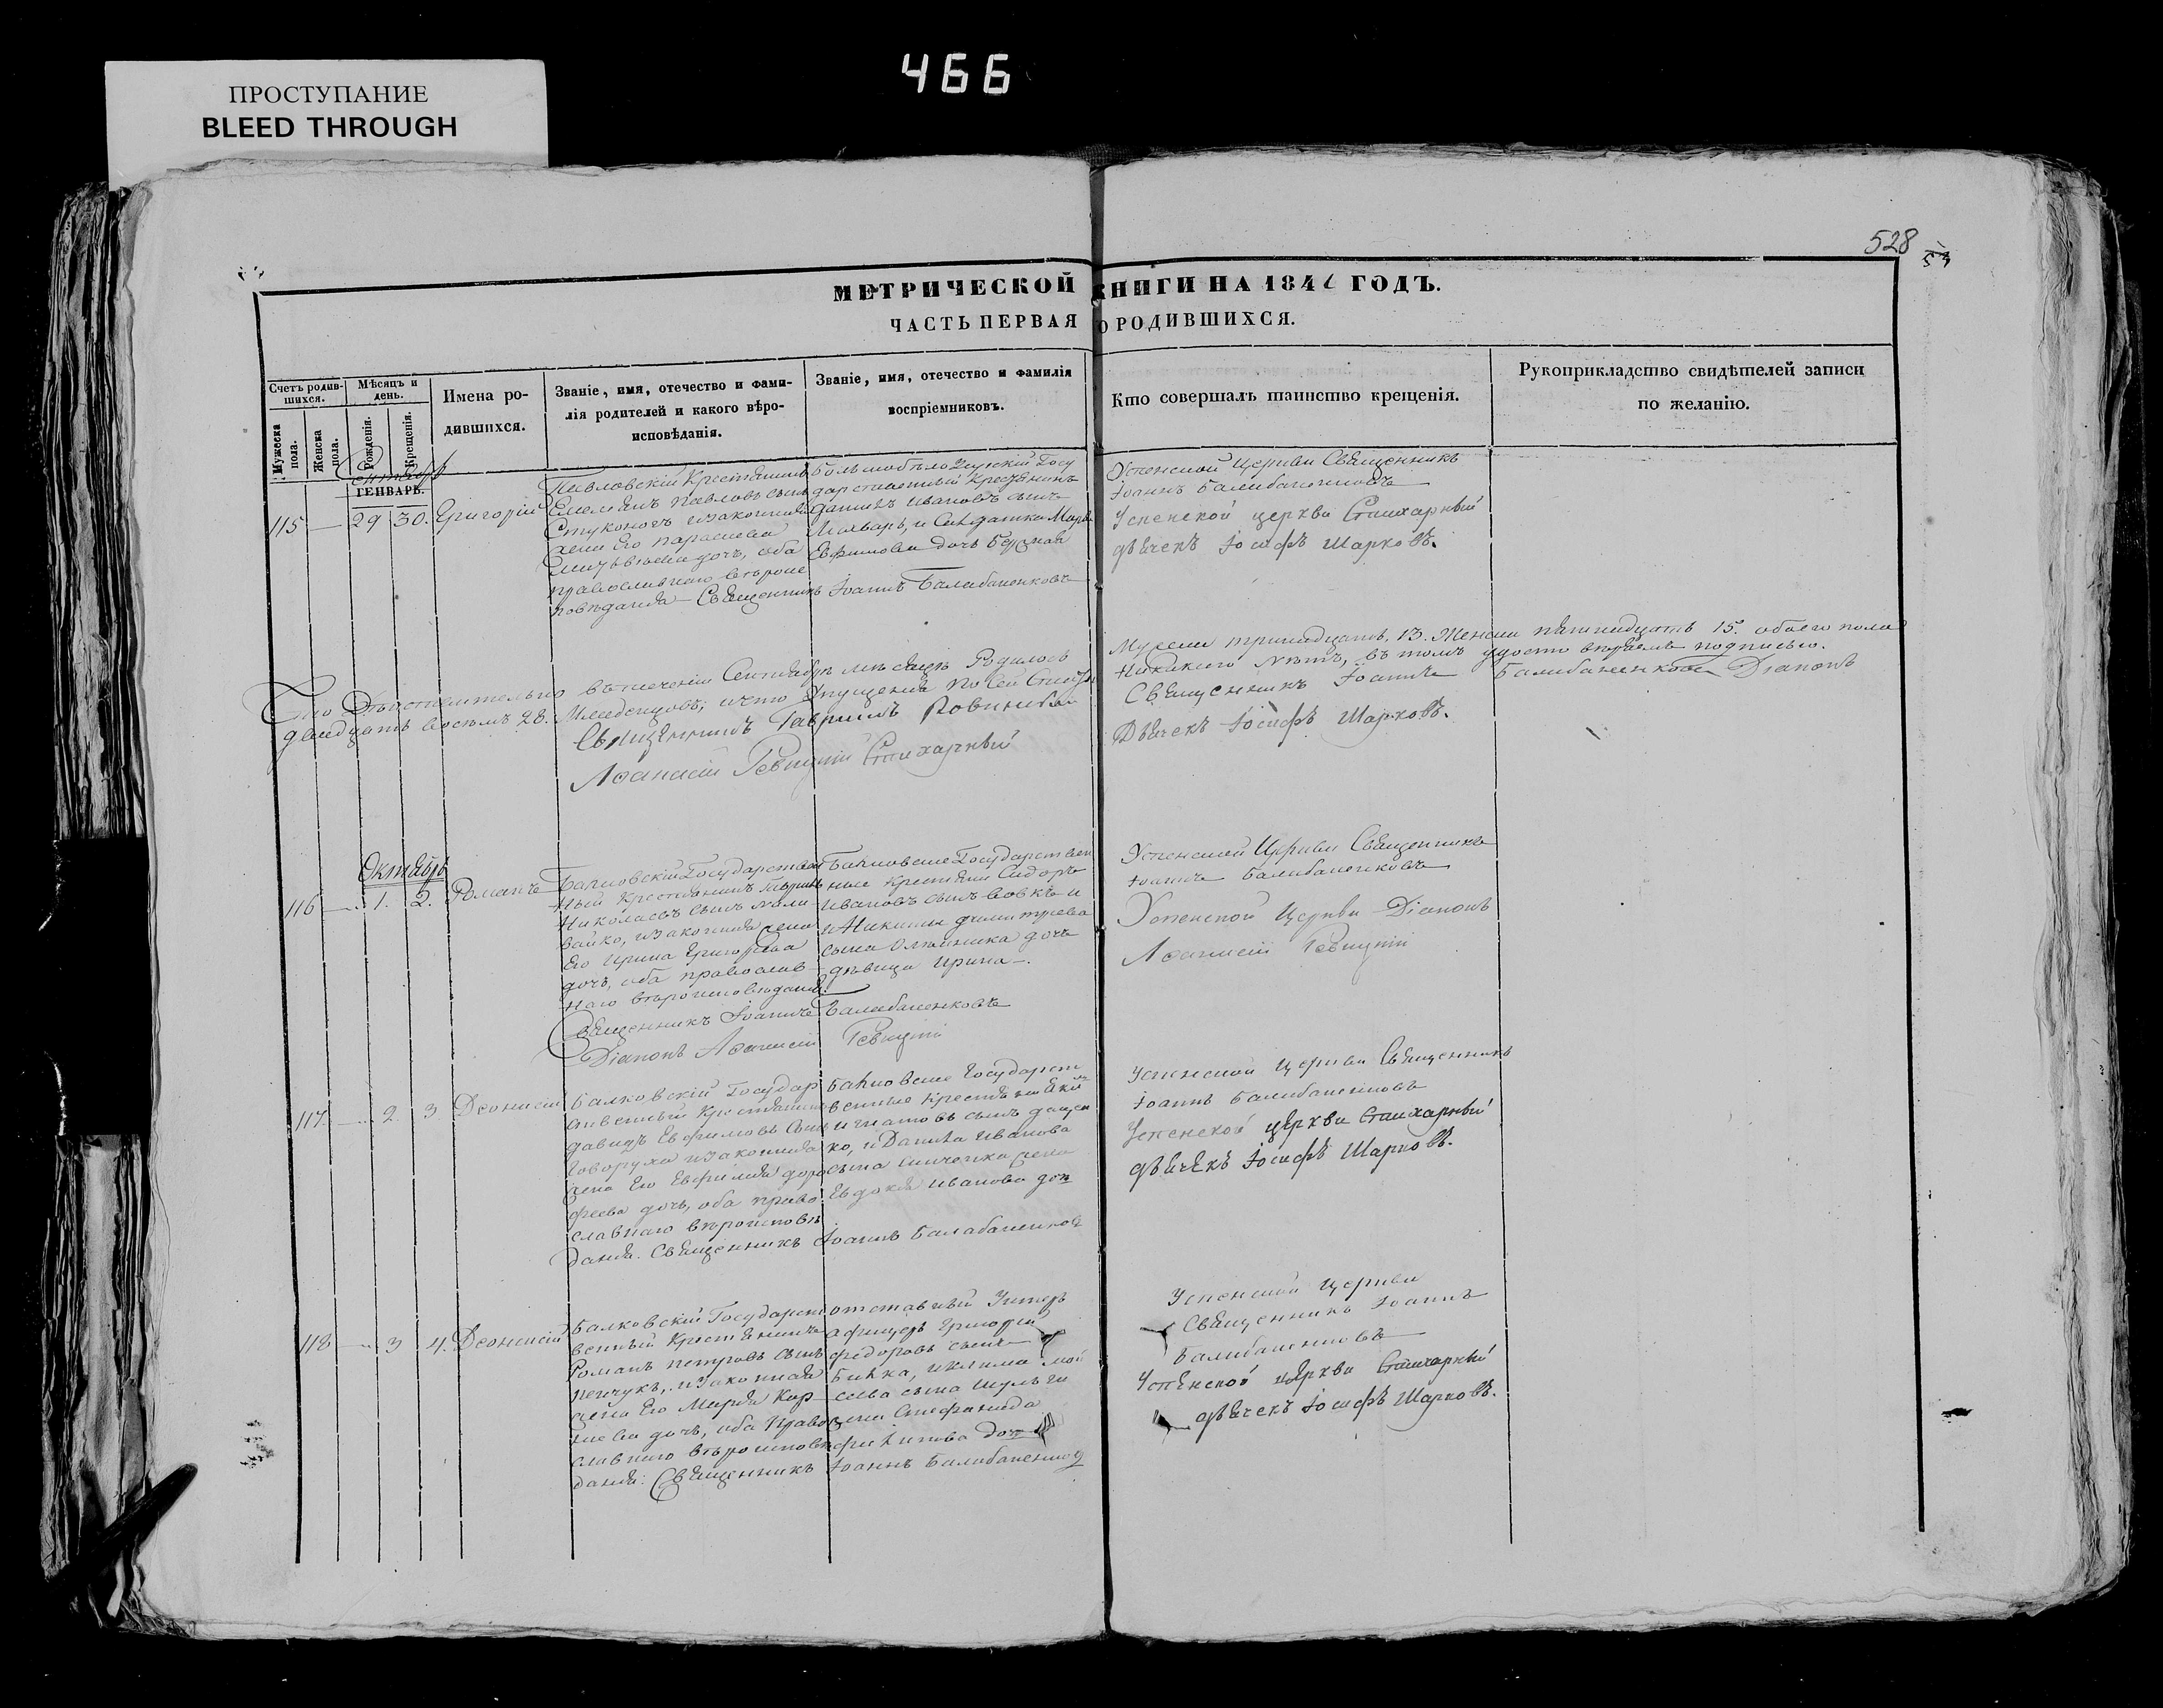 466
ПРОСТУПАНИЕ
BLEED THROUGH
528
МЕТРИЧЕСКОЙ КНИГИ НА 184 ГОДЪ.
ЧАСТЬ ПЕРВАЯ О РОДИВШИХСЯ.
Счетъ родив-
шихся.
Мужеска
пола.
Женска
пола.
Мѣсяцъ и
день.
Рожденія.
Крещенія.
Имена ро-
дившихся.
Званіе, имя, отечество и фами-
лія родителей и какого вѣро-
исповѣданія.
Званіе, имя, отечество и фамилія
воспріемниковъ.
Кто совершалъ таинство крещенія.
Рукоприкладство свидѣтелей записи
по желанію.
Сентябрь
ГЕНВАРЬ.
115 29 30. Григорій
Павловскій Крестьянинъ
Емельянъ Павловъ сынъ
изаконная
жена Его Параскева
дочь, оба
православнаго вѣроис
повѣданія Священникъ Іоаннъ Балабаненковъ
Государственный
Даніилъ Ивановъ сынъ
и Солдатка
Ефимова дочь
Успенской Церкви Священникъ
Іоаннъ Балабаненковъ
Успенской церкви Стихарный
дьячекъ Іосифъ Шарковъ.
Что Дѣйствительно втеченіи Сентября мѣсяца Родилось
Мужеска тринадцать, 13. Женска пятнадцать 15. обоего пола
двадцать восемь 28. Младенцовъ, и что упущенія по сей
Никакого нѣтъ, въ томъ удостовѣряемъ подписью.
Священникъ Гавріилъ
Священникъ Іоаннъ Балабаненковъ Діаконъ
Аѳанасій Стихарный
Дьячекъ Іосифъ Шарковъ.
Октябрь
116 1. 2. Романъ
Балковскій Государствен
ный Крестьянинъ
Николаевъ сынъ Мали
вайко, изаконная жена
Его Ирина Григорьева
дочь, оба православ
наго вѣроисповѣданія.
Священникъ Іоаннъ Балабаненковъ
Діаконъ Аѳанасій
Балковские Государствен
ные Крестьяни Сидоръ
Ивановъ сынъ Вовкъ и
Никиты Димитріева
сына Олейника дочь
дѣвица Ирина.
Успенской Церкви Священникъ
Іоаннъ Балабаненковъ
Успенской Церкви Діаконъ
Аѳанасій
117. 2. 3 Деонисій
Балковскій Государ
ственный Крестьянинъ
Давидъ Ефимовъ сынъ
Говоруха изаконная
жена Его Евфимія Доро
феева дочь, оба право
славнаго вѣроисповѣ
данія. Священникъ Іоаннъ Балабаненковъ
Балковские Государст
венные Крестьяни
Игнатовъ сынъ
ко, и Данила Иванова
сына жена
Евдокія Иванова дочь
Успенской Церкви Священникъ
Іоаннъ Балабаненковъ
Успенской церкви Стихарный
дьячекъ Іосифъ Шарковъ.
118 3 4. Деонисій
Балковскій Государст
венный Крестьянинъ
Романъ Петровъ сынъ
изаконная
жена Его Марія Кор
нева дочь, оба Право
славнаго вѣроисповѣ
данія: Священникъ Іоаннъ Балабаненковъ
отставный Унтеръ
афицеръ Григорій
Федоровъ сынъ
Билка, иклима Мои
сеева сына Шульги
жена Стефанида
Филипова дочь
Успенской Церкви
Священникъ Іоаннъ
Балабаненковъ
Успенской церкви Стихарный
дьячекъ Іосифъ Шарковъ.